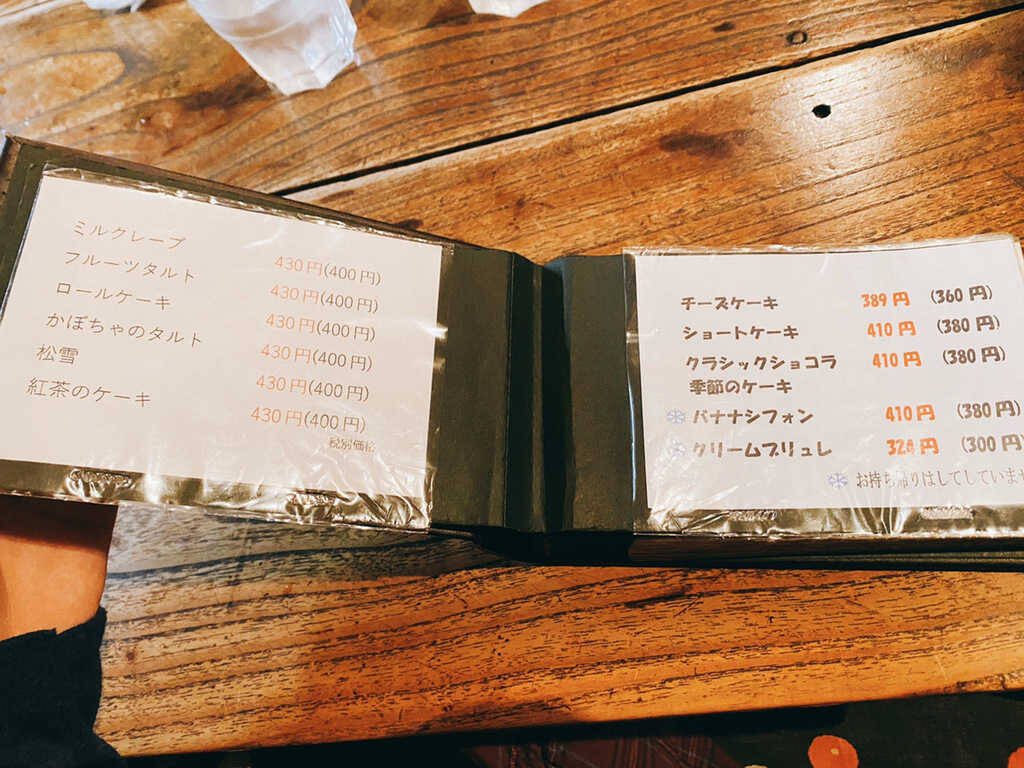 ミルクレープ 430円(400円)
フルーツタルト 430円(400円)
ロールケーキ 430円(400円)
かぼちゃのタルト 430円(400円)
松雪 430円(400円)
紅茶のケーキ 430円(400円)
税別価格
チーズケーキ 389円 (360円)
ショートケーキ 410円 (380円)
クラシックショコラ 410円 (380円)
季節のケーキ
バナナシフォン 410円 (380円)
クリームブリュレ 324円 (300円
お持ち帰りはしてしていませ